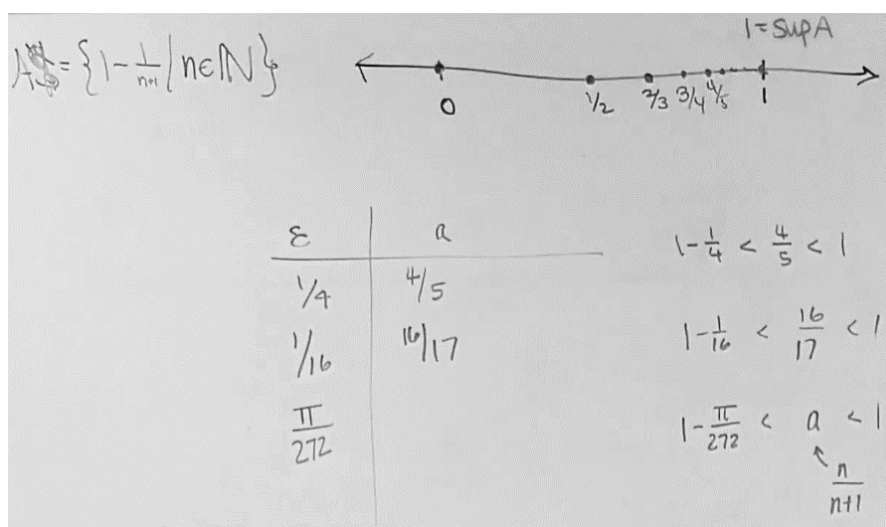 A = {1 - 1/(n+1) | n ∈ ℕ}
1 = sup A
0 1/2 2/3 3/4 4/5 1
ε a
1/4 4/5
1/16 16/17
π/272
1 - 1/4 < 4/5 < 1
1 - 1/16 < 16/17 < 1
1 - π/272 < a < 1
n/(n+1)